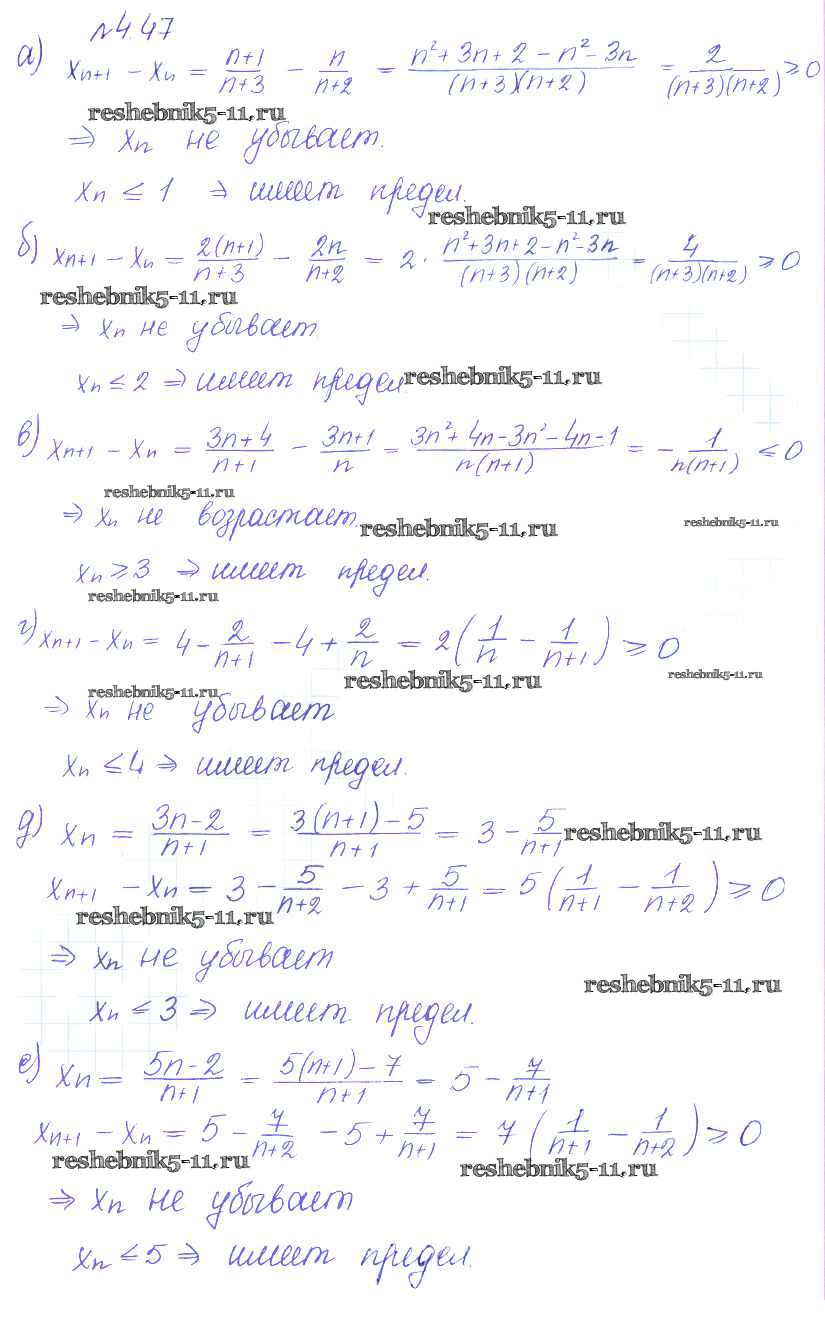 №4.47
а) xₙ₊₁ − xₙ = (n+1)/(n+3) − n/(n+2) = (n²+3n+2−n²−3n)/((n+3)(n+2)) = 2/((n+3)(n+2)) ≥ 0
reshebnik5-11.ru
⇒ xₙ не убывает.
xₙ ≤ 1 ⇒ имеет предел.
reshebnik5-11.ru
б) xₙ₊₁ − xₙ = 2(n+1)/(n+3) − 2n/(n+2) = 2 · (n²+3n+2−n²−3n)/((n+3)(n+2)) = 4/((n+3)(n+2)) ≥ 0
reshebnik5-11.ru
⇒ xₙ не убывает
xₙ ≤ 2 ⇒ имеет предел. reshebnik5-11.ru
в) xₙ₊₁ − xₙ = (3n+4)/(n+1) − (3n+1)/n = (3n²+4n−3n²−4n−1)/(n(n+1)) = −1/(n(n+1)) ≤ 0
reshebnik5-11.ru
⇒ xₙ не возрастает. reshebnik5-11.ru reshebnik5-11.ru
xₙ ≥ 3 ⇒ имеет предел.
reshebnik5-11.ru
г) xₙ₊₁ − xₙ = 4 − 2/(n+1) − 4 + 2/n = 2(1/n − 1/(n+1)) ≥ 0
reshebnik5-11.ru reshebnik5-11.ru reshebnik5-11.ru
⇒ xₙ не убывает
xₙ ≤ 4 ⇒ имеет предел.
д) xₙ = (3n−2)/(n+1) = (3(n+1)−5)/(n+1) = 3 − 5/(n+1) reshebnik5-11.ru
xₙ₊₁ − xₙ = 3 − 5/(n+2) − 3 + 5/(n+1) = 5(1/(n+1) − 1/(n+2)) ≥ 0
reshebnik5-11.ru
⇒ xₙ не убывает
reshebnik5-11.ru
xₙ ≤ 3 ⇒ имеет предел.
е) xₙ = (5n−2)/(n+1) = (5(n+1)−7)/(n+1) = 5 − 7/(n+1)
xₙ₊₁ − xₙ = 5 − 7/(n+2) − 5 + 7/(n+1) = 7(1/(n+1) − 1/(n+2)) ≥ 0
reshebnik5-11.ru reshebnik5-11.ru
⇒ xₙ не убывает
xₙ ≤ 5 ⇒ имеет предел.